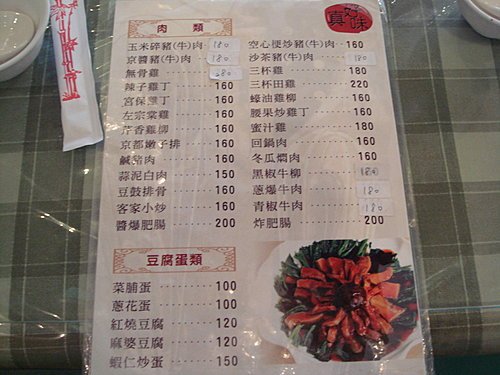 真好味
肉類
玉米碎豬(牛)肉 180
京醬豬(牛)肉 180
無骨雞 280
辣子雞丁 160
宮保雞丁 160
左宗棠雞 160
芹香雞柳 160
京都嫩子排 160
鹹豬肉 160
蒜泥白肉 150
豆鼓排骨 160
客家小炒 160
醬爆肥腸 200
空心梗炒豬(牛)肉 160
沙茶豬(牛)肉 180
三杯雞 180
三杯田雞 220
蠔油雞柳 160
腰果炒雞丁 160
蜜汁雞 180
回鍋肉 160
冬瓜燜肉 160
黑椒牛柳 180
蔥爆牛肉 180
青椒牛肉 180
炸肥腸 200
豆腐蛋類
菜脯蛋 100
蔥花蛋 100
紅燒豆腐 120
麻婆豆腐 120
蝦仁炒蛋 150